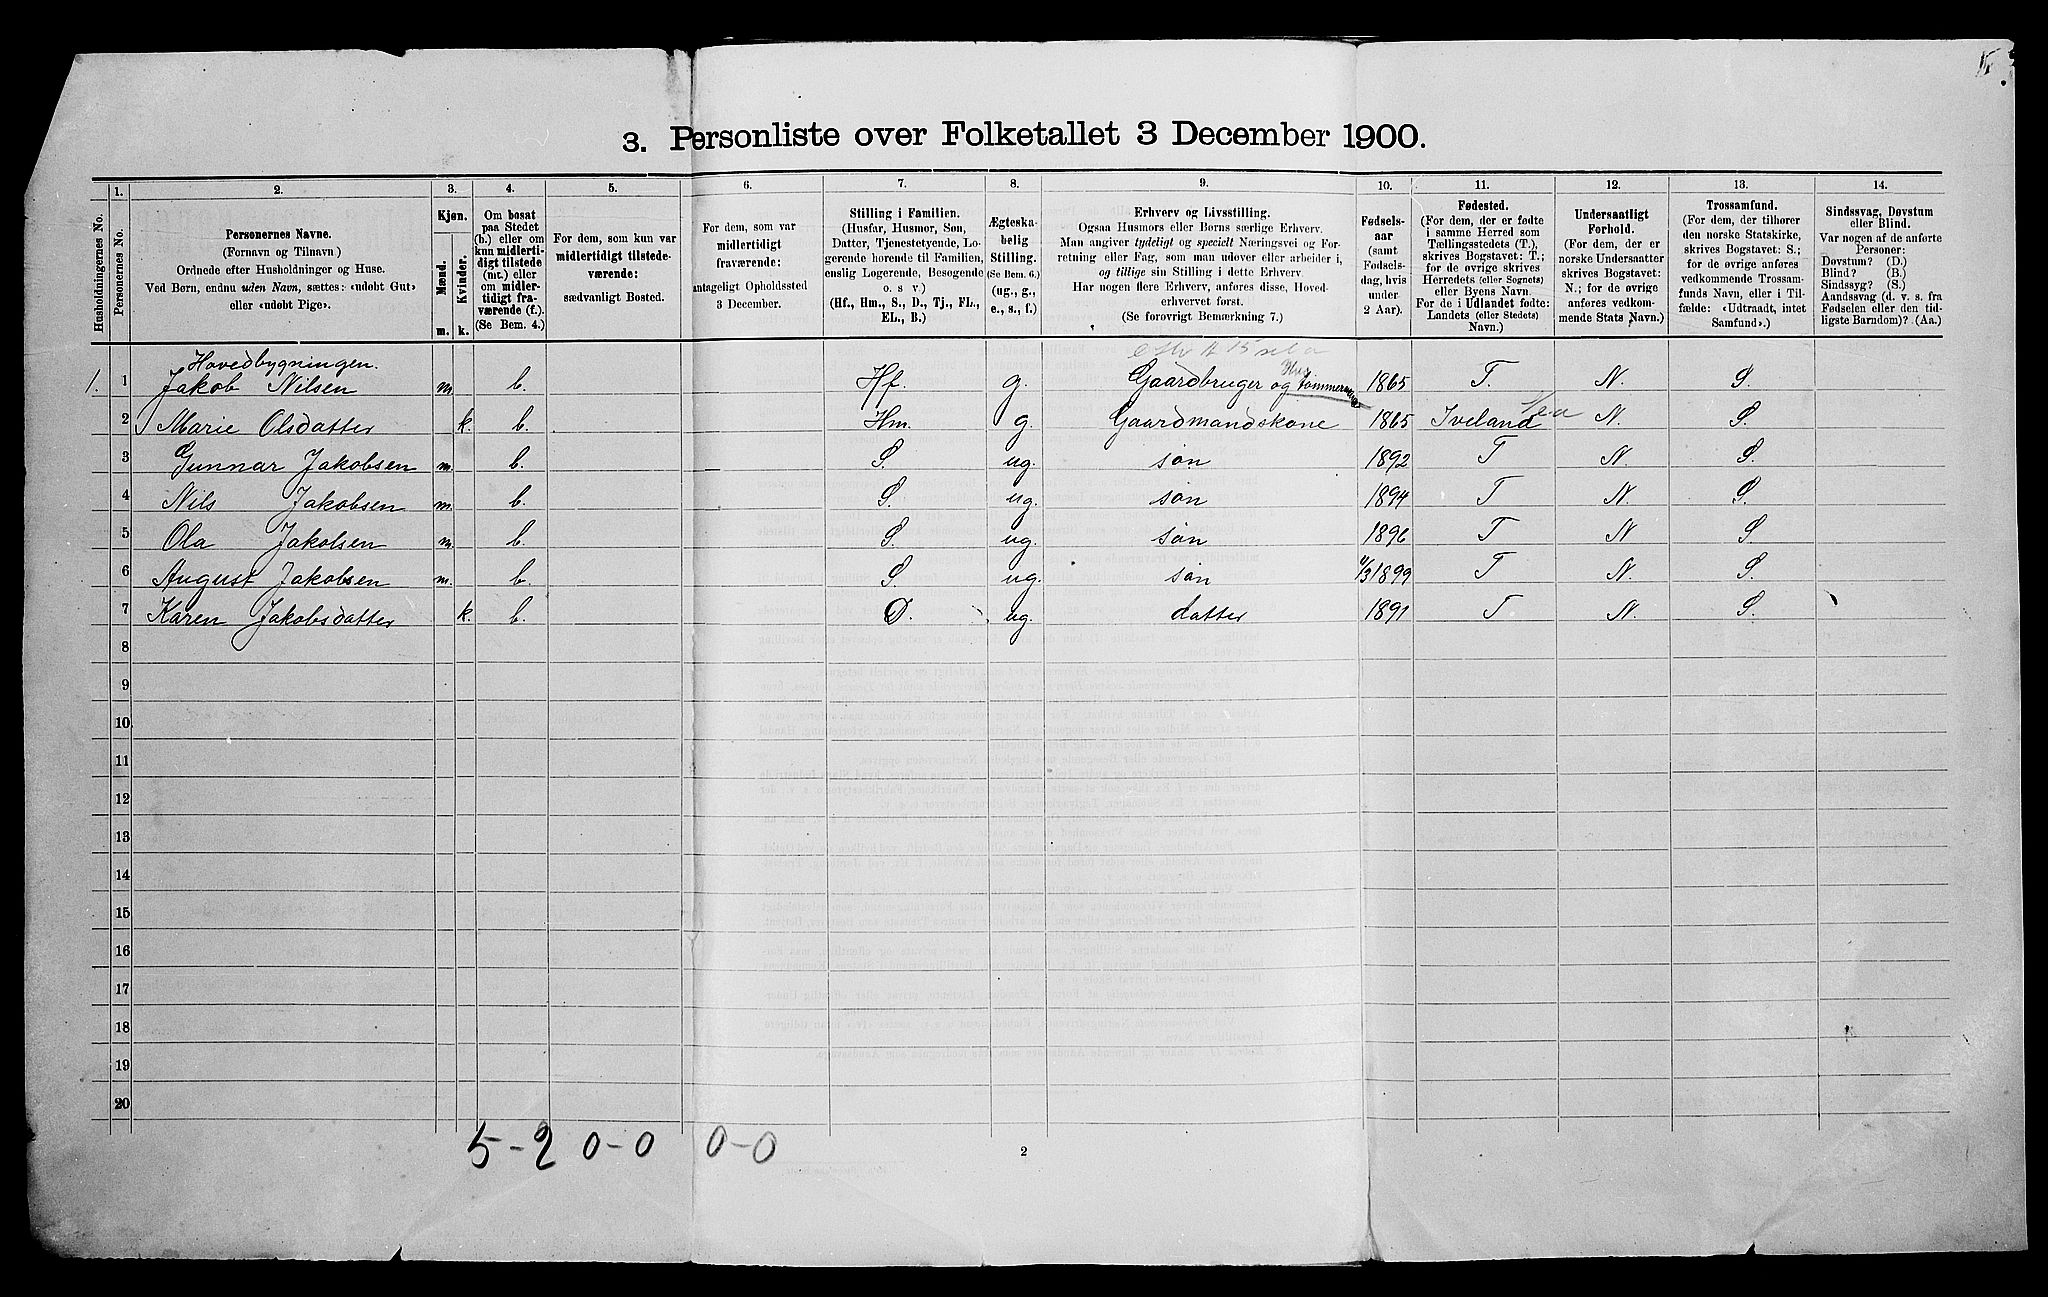 3. Personliste over Folketallet 3 December 1900.
1. 2. 3. 4. 5. 6. 7. 8. 9. 10. 11. 12. 13. 14.
Husholdningernes No.
Personernes No.
Personernes Navne.
(Fornavn og Tilnavn)
Ordnede efter Husholdninger og Huse.
Ved Børn, endnu uden Navn, sættes: «udøbt Gut»
eller «udøbt Pige».
Kjøn.
Mænd.
Kvinder.
m. k.
Om bosat
paa Stedet
(b.) eller om
kun midler-
tidigt tilstede
(mt.) eller
om midler-
tidigt fra-
værende (f.).
(Se Bem. 4.)
For dem, som kun var
midlertidigt tilstede-
værende:
sædvanligt Bosted.
For dem, som var
midlertidigt
fraværende:
antageligt Opholdssted
3 December.
Stilling i Familien.
(Husfar, Husmor, Søn,
Datter, Tjenestetyende, Lo-
gerende hørende til Familien,
enslig Logerende, Besøgende
o. s. v.)
(Hf., Hm., S., D., Tj., FL.,
EL., B.)
Ægteska-
belig
Stilling.
(Se Bem. 6.)
(ug., g.,
e., s., f.)
Erhverv og Livsstilling.
Ogsaa Husmors eller Børns særlige Erhverv.
Man angiver tydeligt og specielt Næringsvei og For-
retning eller Fag, som man udøver eller arbeider i,
og tillige sin Stilling i dette Erhverv.
Har nogen flere Erhverv, anføres disse, Hoved-
erhvervet først.
(Se forøvrigt Bemærkning 7.)
Fødsels-
aar
(samt
Fødsels-
dag, hvis
under
2 Aar).
Fødested.
(For dem, der er fødte
i samme Herred som
Tællingsstedets (T.),
skrives Bogstavet: T.;
for de øvrige skrives
Herredets (eller Sognets)
eller Byens Navn.
For de i Udlandet fødte:
Landets (eller Stedets)
Navn.)
Undersaatligt
Forhold.
(For dem, der er
norske Undersaatter
skrives Bogstavet:
N.; for de øvrige
anføres vedkom-
mende Stats Navn.)
Trossamfund.
(For dem, der tilhører
den norske Statskirke,
skrives Bogstavet: S.;
for de øvrige anføres
vedkommende Trossam-
funds Navn, eller i Til-
fælde: «Udtraadt, intet
Samfund».)
Sindssvag, Døvstum
eller Blind.
Var nogen af de anførte
Personer:
Døvstum? (D.)
Blind? (B.)
Sindssyg? (S.)
Aandssvag (d. v. s. fra
Fødselen eller den tid-
ligste Barndom)? (Aa.)
Hovedbygningen.
1. 1 Jakob Nilsen m. b. Hf. g. Gaardbruger og 1865 T. N. S.
2 Marie Olsdatter k. b. Hm. g. Gaardmandskone 1865 Iveland N. S.
3 Gunnar Jakobsen m. b. S. ug. søn 1892 T N. S.
4 Nils Jakobsen m. b. S. ug. søn 1894 T N. S.
5 Ola Jakobsen m. b. S. ug. søn 1896 T N S.
6 August Jakobsen m. b. S. ug. søn 1899 T N. S.
7 Karen Jakobsdatter k. b. D. ug. datter 1891 T N. S.
8
9
10
11
12
13
14
15
16
17
18
19
20
5-2 0-0 0-0
2